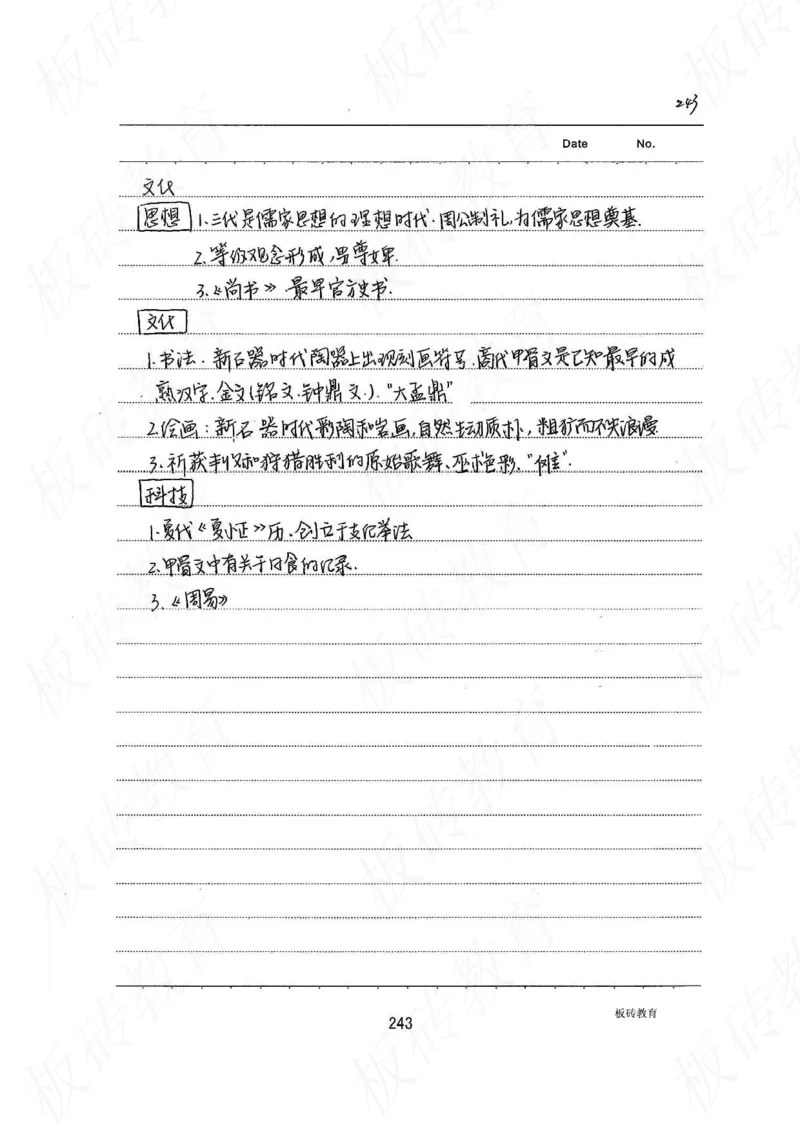 243
Date No.
文化
思想 1.三代是儒家思想的理想时代.周公制礼,为儒家思想奠基.
2.等级观念形成,男尊女卑.
3.《尚书》 最早官方史书.
文化
1.书法:新石器时代陶器上出现刻画符号.商代甲骨文是已知最早的成
熟汉字.金文(铭文.钟鼎文.)."大孟鼎"
2.绘画:新石器时代彩陶和岩画,自然生动质朴,粗犷而不失浪漫
3.祈获丰收和狩猎胜利的原始歌舞、巫术色彩."傩".
科技
1.夏代《夏小正》历.创立干支纪年法
2.甲骨文中有关于日食的记录.
3.《周易》
243
板砖教育